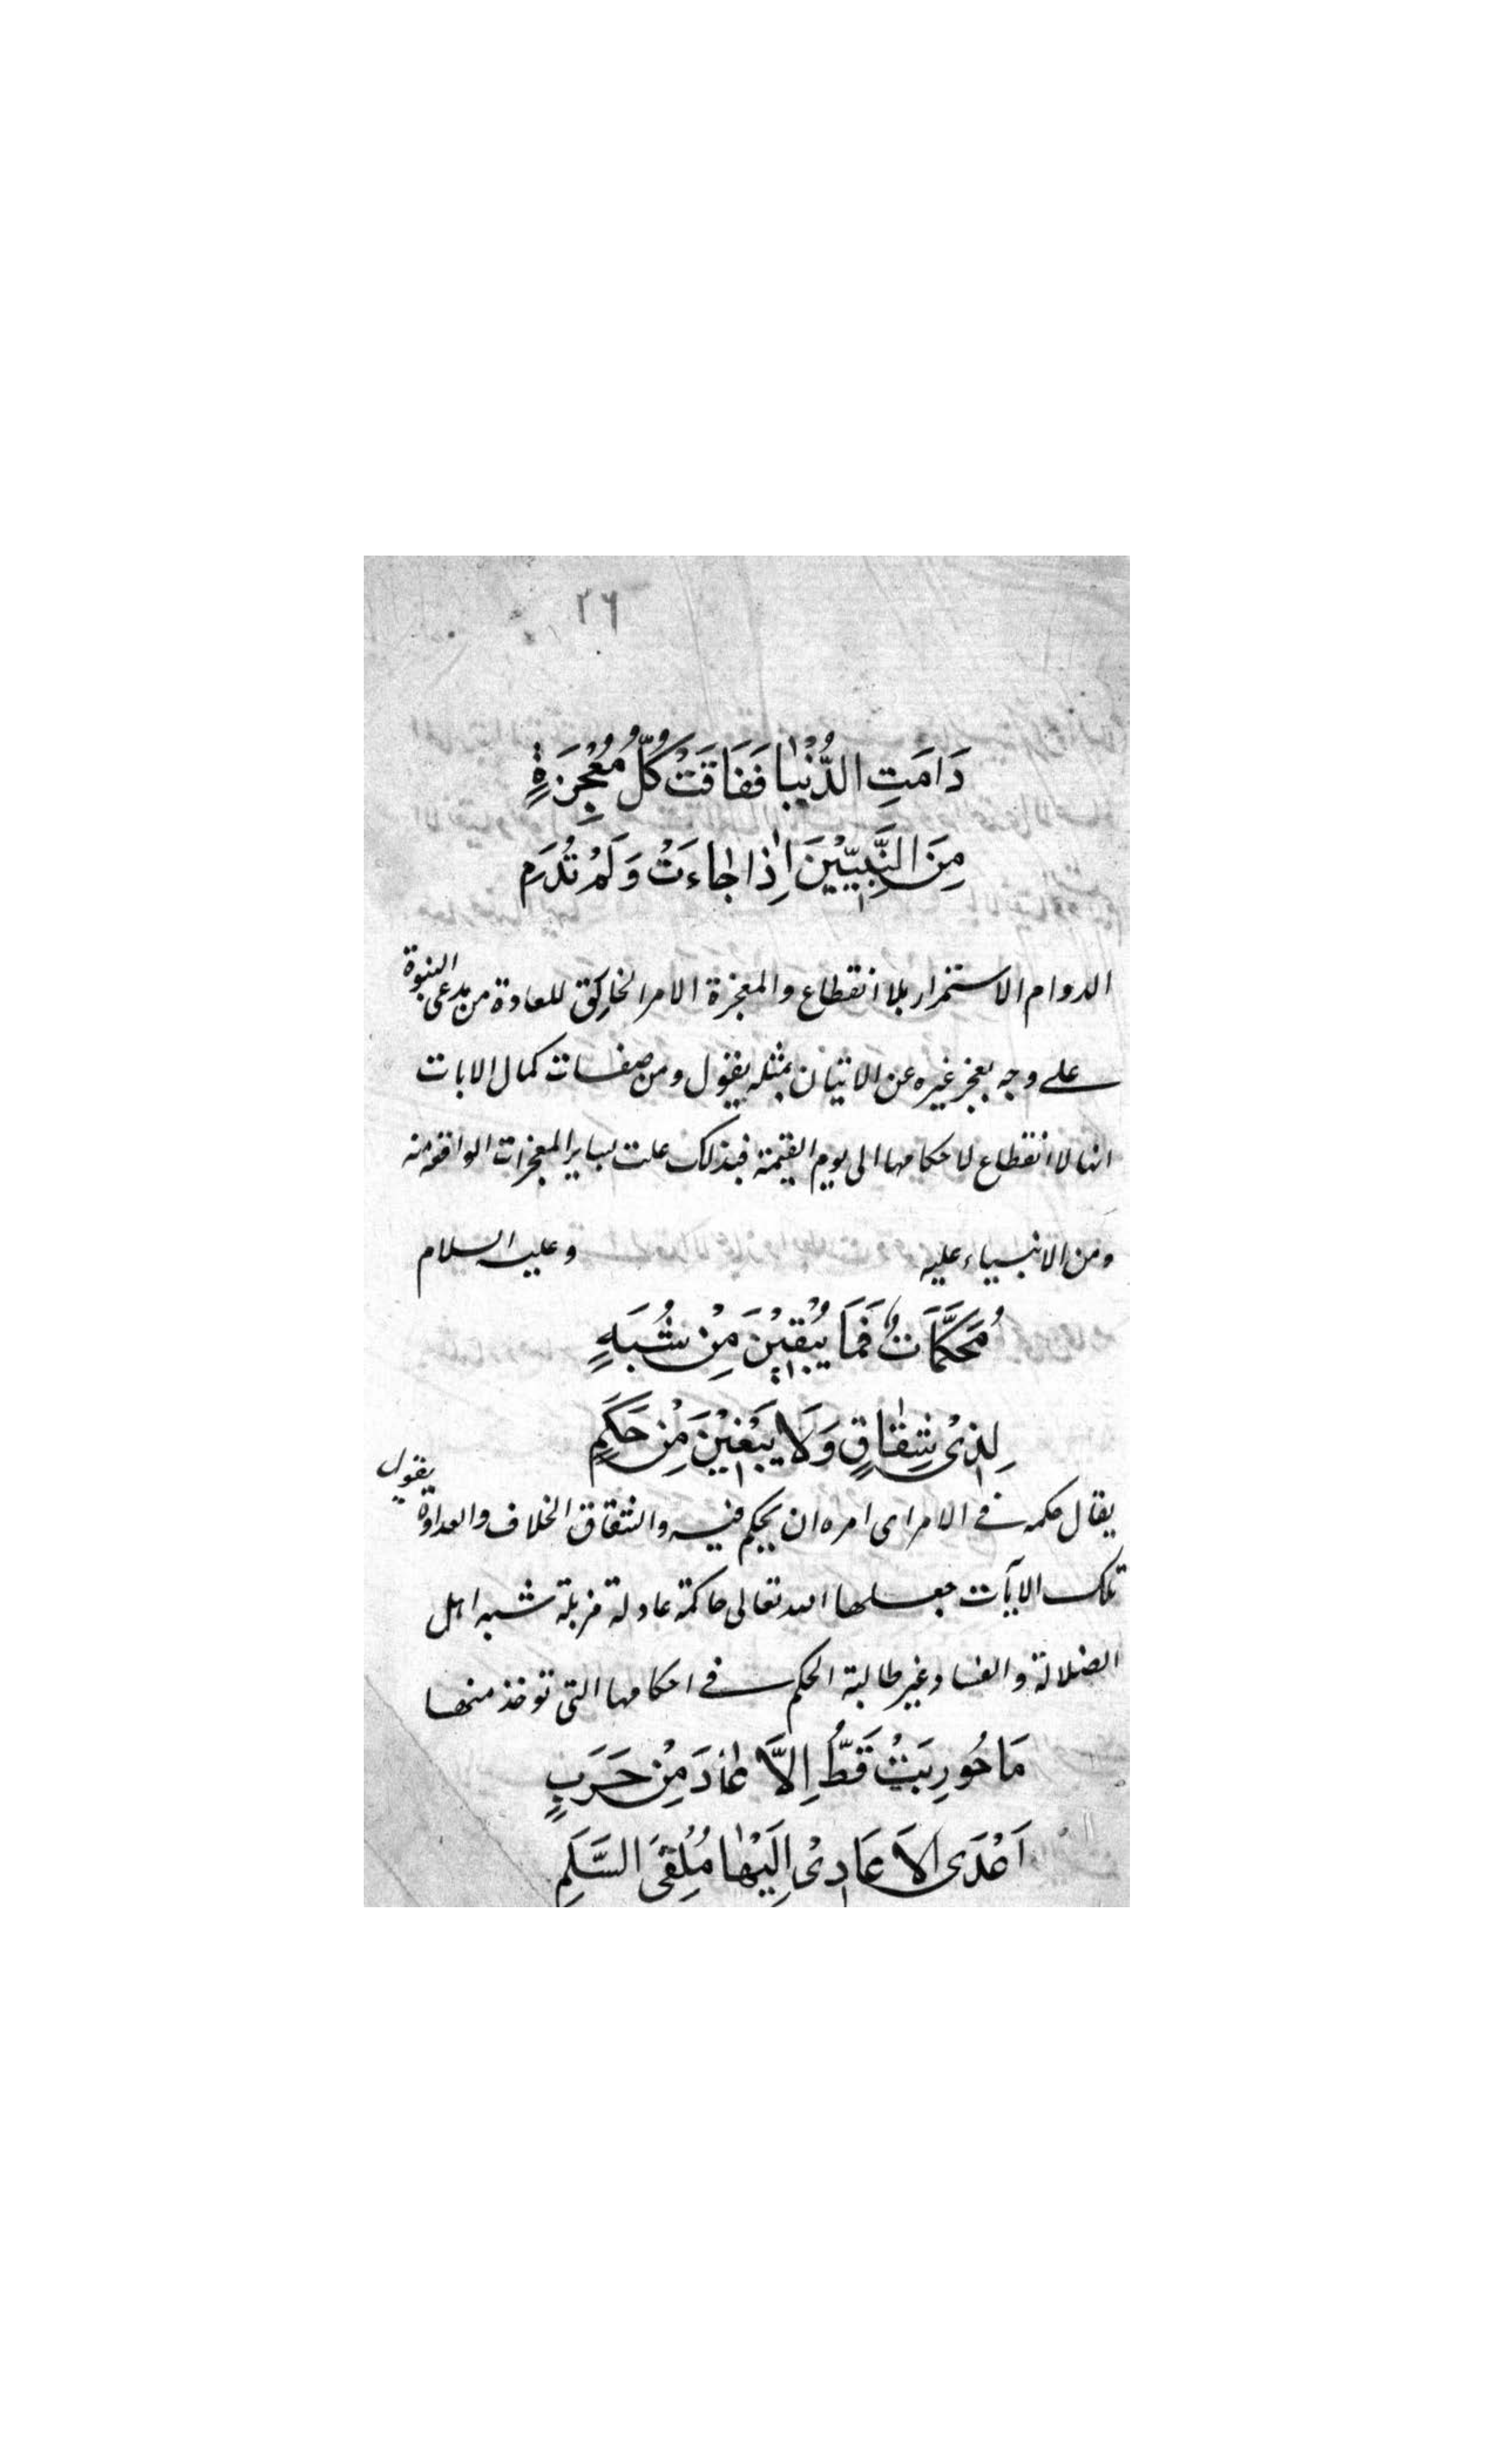 ٢٦
دَامَتِ الدُّنْيَا فَفَاقَتْ كُلَّ مُعْجِزَةٍ
مِنَ النَّبِيّيْنَ اِذَا جَاءَتْ وَلَمْ تُدَمِ
الدوام الاستمرار بلا انقطاع والمعجزة الامر الخارق للعادة من مدعى النبوة
على وجه يعجز غيره عن الاتيان بمثله يقول ومن صفات كمال الايات
انها لا انقطاع لاحكامها الى يوم القيمة فبذلك علت لساير المعجزات الواقعة منه
ومن الانبياء عليه وعليه السلام
مُحَكَّمَاتٌ فَمَا يُبْقِيْنَ مِنْ شُبَهٍ
لِذِىْ شِقَاقٍ وَلَا يَبْغِيْنَ مِنْ حَكَمٍ
يقال حكمه فى الامر اى امره ان يحكم فيه والشقاق الخلاف والعداوة يقول
تلك الآيات جعلها الله تعالى حاكمة عادلة مزيلة شبه اهل
الضلالة والفساد وغير طالبة الحكم فى احكامها التى توخذ منها
مَا حُورِبَتْ قَطُّ اِلَّا عَادَ مِنْ حَرَبٍ
اَعْدَى الاَعَادِىْ اِلَيْهَا مُلْقِىَ السَّلَمِ